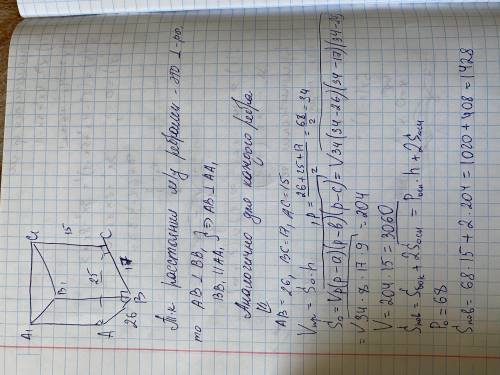 A₁
C₁
15
B₁
A
25
C
26
B
17
Т.к расстояния м/у ребрами - это ⊥-ры,
то AB ⊥ BB₁ } ⇒ AB ⊥ AA₁
BB₁ || AA₁
Аналогично для каждого ребра
AB = 26, BC = 17, AC = 15
Vпр = S₀ · h p = (26+25+17)/2 = 68/2 = 34
S₀ = √p(p-a)(p-b)(p-c) = √34(34-26)(34-17)(34-25)
= √34 · 8 · 17 · 9 = 204
V = 204 · 15 = 3060
Sпов = Sбок + 2Sосн = Pосн · h + 2Sосн
P₀ = 68
Sпов = 68 · 15 + 2 · 204 = 1020 + 408 = 1428